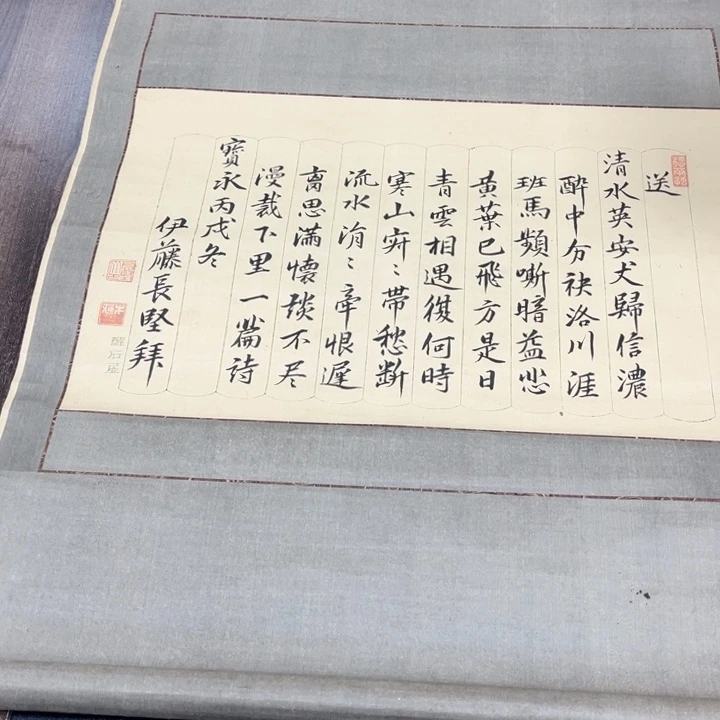 送
清水英安丈歸信濃
醉中分袂洛川涯
班馬頻嘶暗益悲
黄葉已飛方是日
青雲相遇復何時
寒山 帶愁斷
流水涓〻牽恨遲
离思滿懷談不尽
漫裁下里一篇詩
寶永丙戌冬
伊藤長堅拜